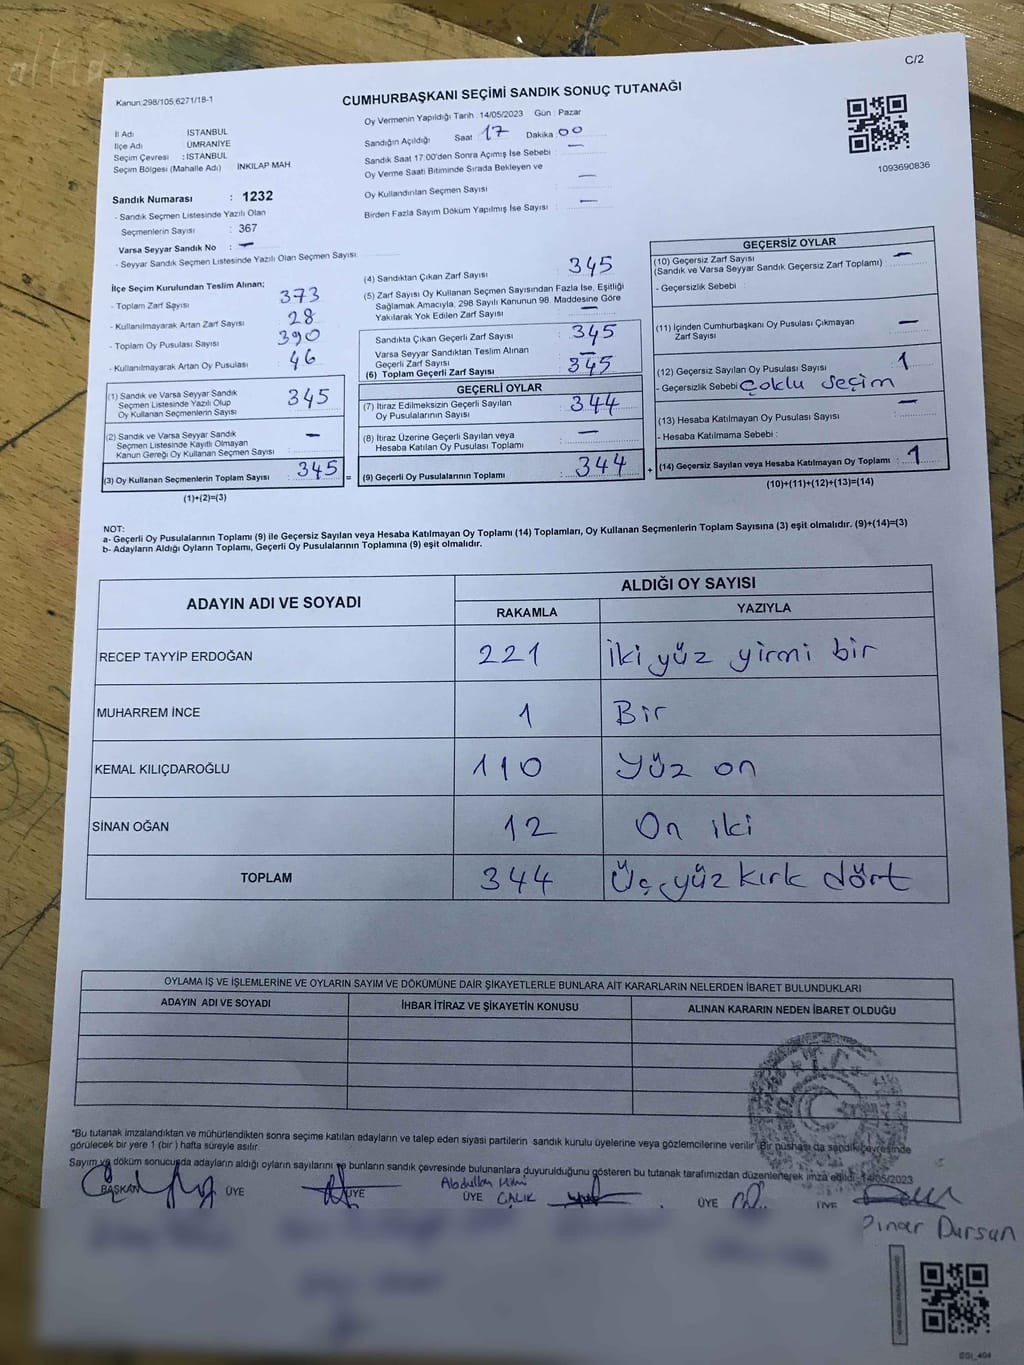 C/2
Kanun:298/105,6271/18-1
CUMHURBAŞKANI SEÇİMİ SANDIK SONUÇ TUTANAĞI
Oy Vermenin Yapıldığı Tarih : 14/05/2023 Gün : Pazar
İl Adı İSTANBUL
İlçe Adı ÜMRANİYE
Seçim Çevresi : İSTANBUL
Seçim Bölgesi (Mahalle Adı) İNKILAP MAH.
Sandık Numarası : 1232
- Sandık Seçmen Listesinde Yazılı Olan
Seçmenlerin Sayısı : 367
Varsa Seyyar Sandık No : —
- Seyyar Sandık Seçmen Listesinde Yazılı Olan Seçmen Sayısı:
Sandığın Açıldığı Saat 17 Dakika 00
Sandık Saat 17:00'den Sonra Açımış İse Sebebi : —
Oy Verme Saati Bitiminde Sırada Bekleyen ve
Oy Kullandırılan Seçmen Sayısı —
Birden Fazla Sayım Döküm Yapılmış İse Sayısı : —
1093690836
İlçe Seçim Kurulundan Teslim Alınan;
- Toplam Zarf Sayısı 373
- Kullanılmayarak Artan Zarf Sayısı 28
- Toplam Oy Pusulası Sayısı 390
- Kullanılmayarak Artan Oy Pusulası 46
(1) Sandık ve Varsa Seyyar Sandık
Seçmen Listesinde Yazılı Olup
Oy Kullanan Seçmenlerin Sayısı 345
(2) Sandık ve Varsa Seyyar Sandık
Seçmen Listesinde Kayıtlı Olmayan
Kanun Gereği Oy Kullanan Seçmen Sayısı —
(3) Oy Kullanan Seçmenlerin Toplam Sayısı : 345 =
(1)+(2)=(3)
(4) Sandıktan Çıkan Zarf Sayısı 345
(5) Zarf Sayısı Oy Kullanan Seçmen Sayısından Fazla İse, Eşitliği
Sağlamak Amacıyla, 298 Sayılı Kanunun 98. Maddesine Göre
Yakılarak Yok Edilen Zarf Sayısı : —
Sandıkta Çıkan Geçerli Zarf Sayısı : 345
Varsa Seyyar Sandıktan Teslim Alınan
Geçerli Zarf Sayısı —
(6) Toplam Geçerli Zarf Sayısı 345
GEÇERLİ OYLAR
(7) İtiraz Edilmeksizin Geçerli Sayılan
Oy Pusulalarının Sayısı 344
(8) İtiraz Üzerine Geçerli Sayılan veya
Hesaba Katılan Oy Pusulası Toplamı : —
(9) Geçerli Oy Pusulalarının Toplamı : 344 +
GEÇERSİZ OYLAR
(10) Geçersiz Zarf Sayısı
(Sandık ve Varsa Seyyar Sandık Geçersiz Zarf Toplamı) : —
- Geçersizlik Sebebi :
(11) İçinden Cumhurbaşkanı Oy Pusulası Çıkmayan
Zarf Sayısı —
(12) Geçersiz Sayılan Oy Pusulası Sayısı : 1
- Geçersizlik Sebebi Çoklu seçim
(13) Hesaba Katılmayan Oy Pusulası Sayısı : —
- Hesaba Katılmama Sebebi :
(14) Geçersiz Sayılan veya Hesaba Katılmayan Oy Toplamı : 1
(10)+(11)+(12)+(13)=(14)
NOT:
a- Geçerli Oy Pusulalarının Toplamı (9) ile Geçersiz Sayılan veya Hesaba Katılmayan Oy Toplamı (14) Toplamları, Oy Kullanan Seçmenlerin Toplam Sayısına (3) eşit olmalıdır. (9)+(14)=(3)
b- Adayların Aldığı Oyların Toplamı, Geçerli Oy Pusulalarının Toplamına (9) eşit olmalıdır.
ADAYIN ADI VE SOYADI
ALDIĞI OY SAYISI
RAKAMLA YAZIYLA
RECEP TAYYİP ERDOĞAN 221 İki yüz yirmi bir
MUHARREM İNCE 1 Bir
KEMAL KILIÇDAROĞLU 110 Yüz on
SİNAN OĞAN 12 On iki
TOPLAM 344 Üç yüz kırk dört
OYLAMA İŞ VE İŞLEMLERİNE VE OYLARIN SAYIM VE DÖKÜMÜNE DAİR ŞİKAYETLERLE BUNLARA AİT KARARLARIN NELERDEN İBARET BULUNDUKLARI
ADAYIN ADI VE SOYADI İHBAR İTİRAZ VE ŞİKAYETİN KONUSU ALINAN KARARIN NEDEN İBARET OLDUĞU
*Bu tutanak imzalandıktan ve mühürlendikten sonra seçime katılan adayların ve talep eden siyasi partilerin sandık kurulu üyelerine veya gözlemcilerine verilir. Bir nüshası da sandık çevresinde
görülecek bir yere 1 (bir ) hafta süreyle asılır.
Sayım ve döküm sonucunda adayların aldığı oyların sayılarını ve bunların sandık çevresinde bulunanlara duyurulduğunu gösteren bu tutanak tarafımızdan düzenlenerek imza edildi. 14/05/2023
BAŞKAN ÜYE ÜYE ÜYE ÜYE ÜYE
ÇALIK
Pınar Dursun